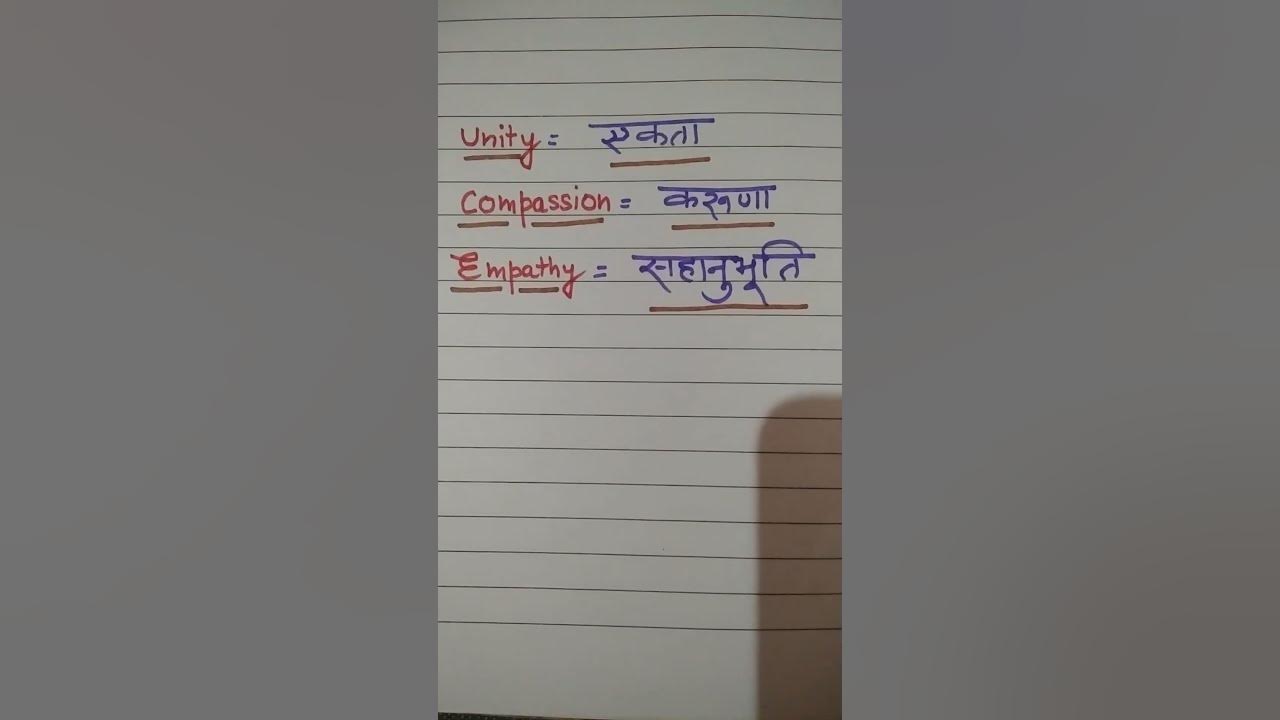 Unity = एकता
Compassion = करुणा
Empathy = सहानुभूति